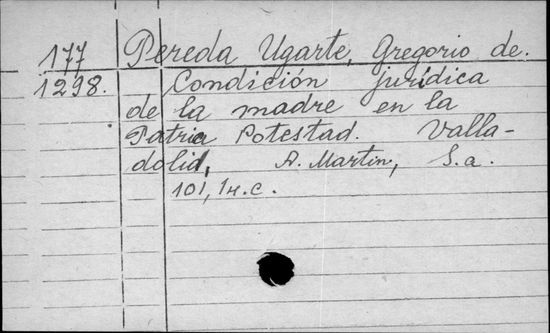 177 Pereda Ugarte, Gregorio de.
1298. Condición jurídica
de la madre en la
Patria Potestad. Valla-
dolid, A. Martin, S.a.
101, 1H.C.